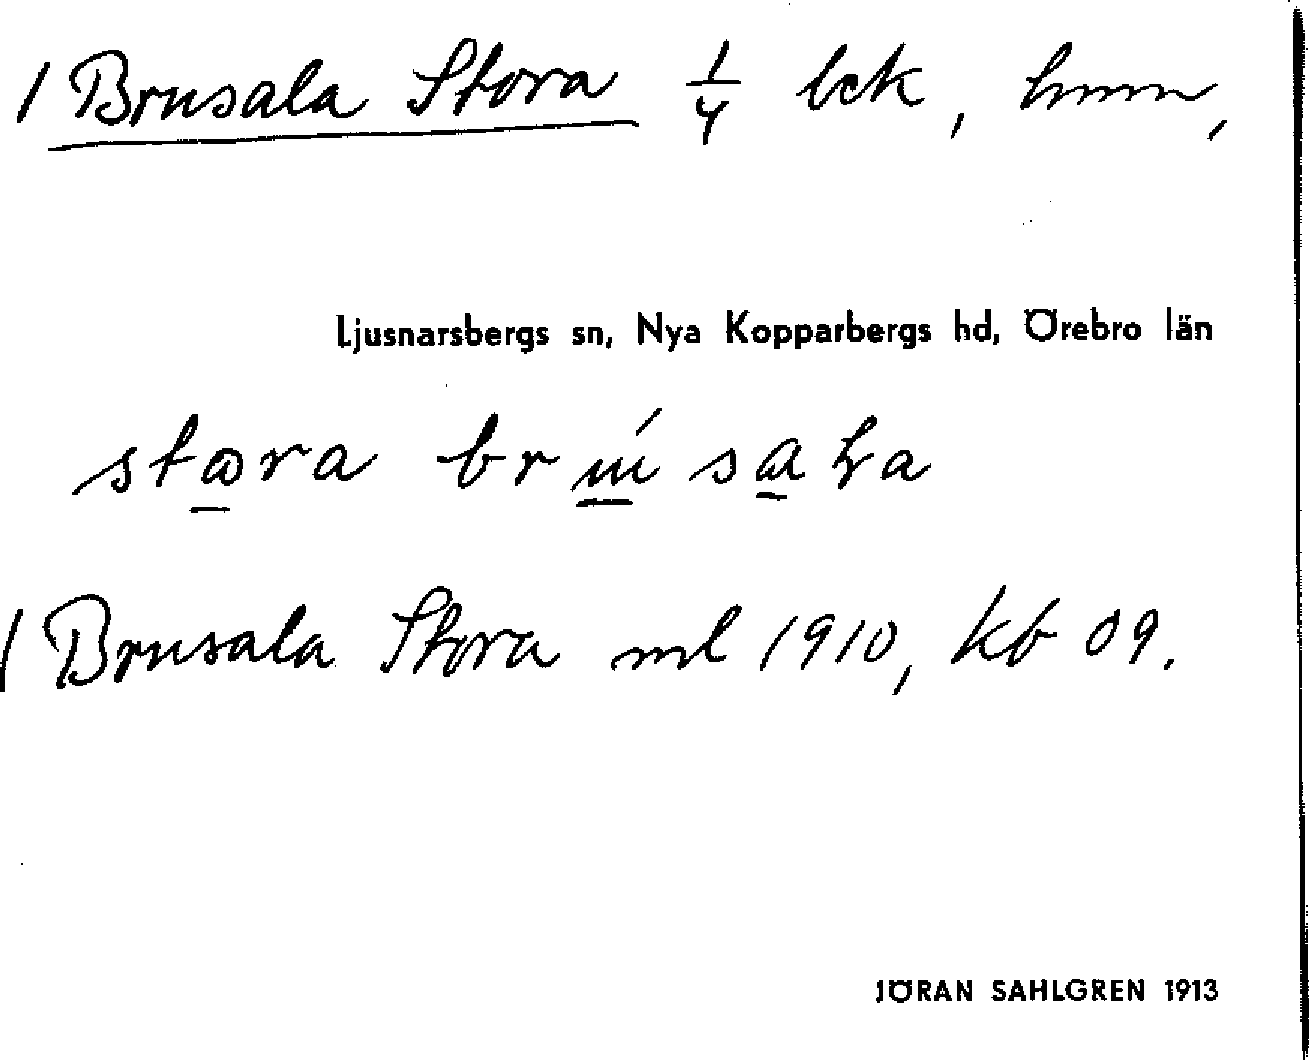 / Brusala Stora 1/4 bck, hmm,
Ljusnarsbergs sn, Nya Kopparbergs hd, Örebro län
stora brúsala
/ Brusala Stora ml 1910, kb 09.
JÖRAN SAHLGREN 1913